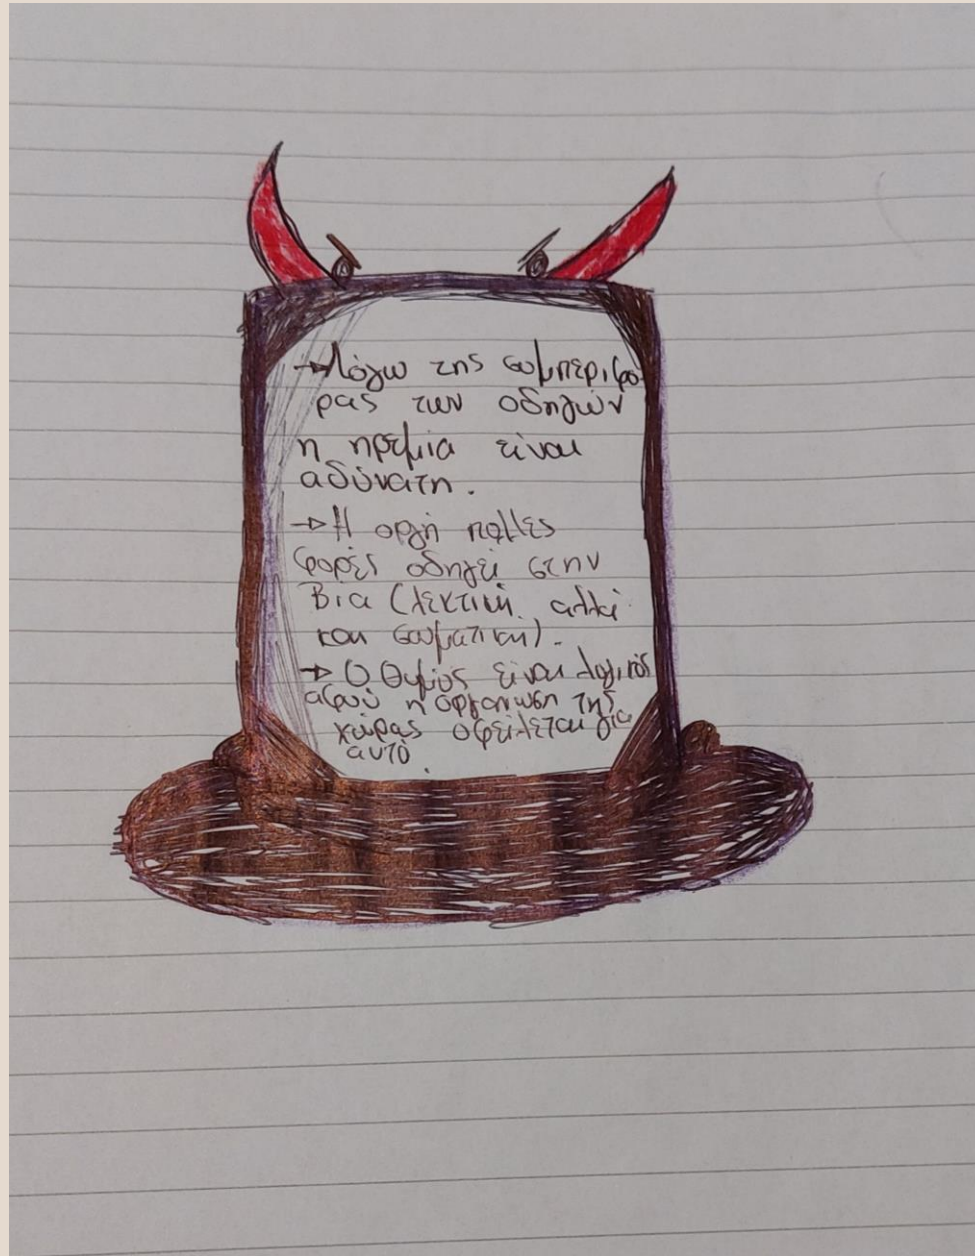 →Λόγω της συμπεριφο
ρας των οδηγών
η ηρεμία είναι
αδύνατη.
→Η οργή πολλές
φορές οδηγεί στην
βία (λεκτική αλλά
και σωματική).
→ Ο θυμός είναι λογικός
αφού η οργάνωση της
χώρας οφείλεται για
αυτό.